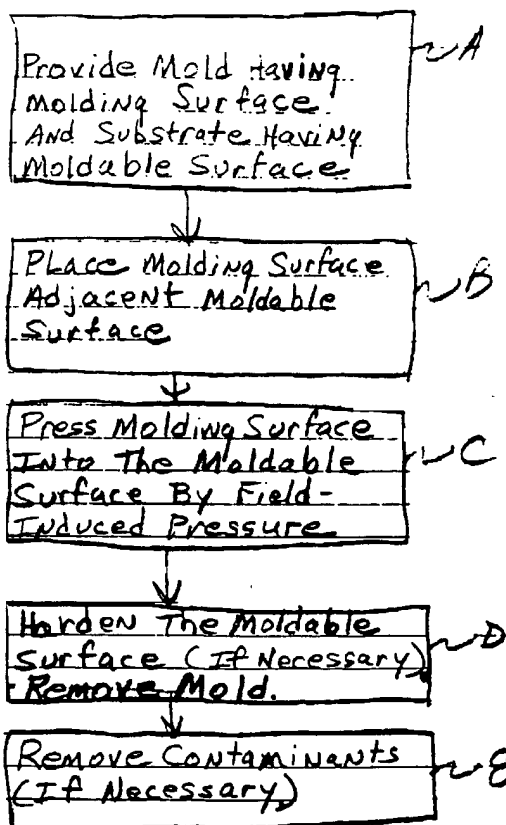 A
Provide Mold Having
Molding Surface
And Substrate Having
Moldable Surface
Place Molding Surface
Adjacent Moldable
Surface
B
Press Molding Surface
Into The Moldable
Surface By Field-
Induced Pressure
C
Harden The Moldable
Surface (If Necessary),
Remove Mold.
D
Remove Contaminants
(If Necessary)
E